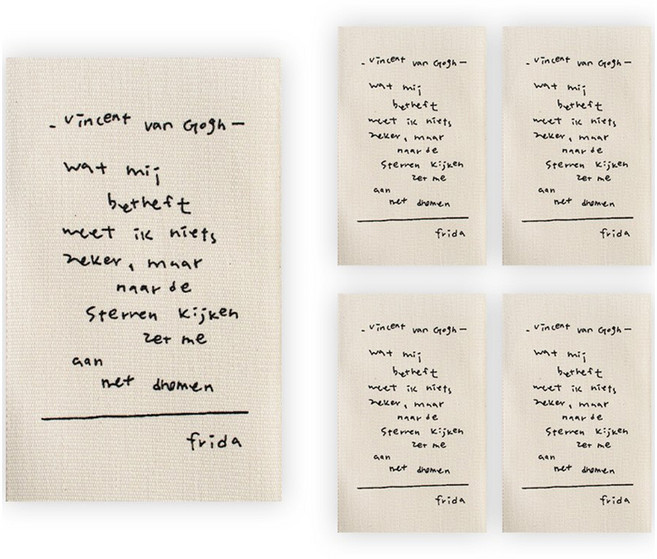 - vincent van Gogh —
wat mij
betreft
weet ik niets
zeker, maar
naar de
Sterren kijken
zet me
aan
het dromen
frida
- vincent van Gogh —
wat mij
betreft
weet ik niets
zeker, maar
naar de
Sterren kijken
zet me
aan
het dromen
frida
- vincent van Gogh —
wat mij
betreft
weet ik niets
zeker, maar
naar de
Sterren kijken
zet me
aan
het dromen
frida
- vincent van Gogh —
wat mij
betreft
weet ik niets
zeker, maar
naar de
Sterren kijken
zet me
aan
het dromen
frida
- vincent van Gogh —
wat mij
betreft
weet ik niets
zeker, maar
naar de
Sterren kijken
zet me
aan
het dromen
frida